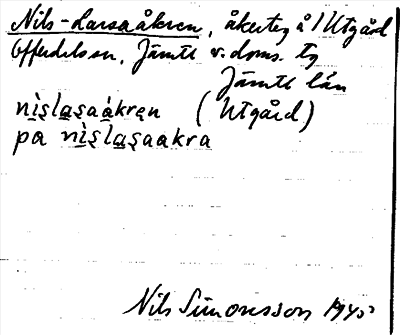 Nils-Larsaåkren, åkerteg å 1 Utgård
Offerdals sn, Jämtl v. doms. tg
Jämtl län
nìs̯lasaákren (Utgård)
pa nìs̯lasaakra
Nils Simonsson 1945